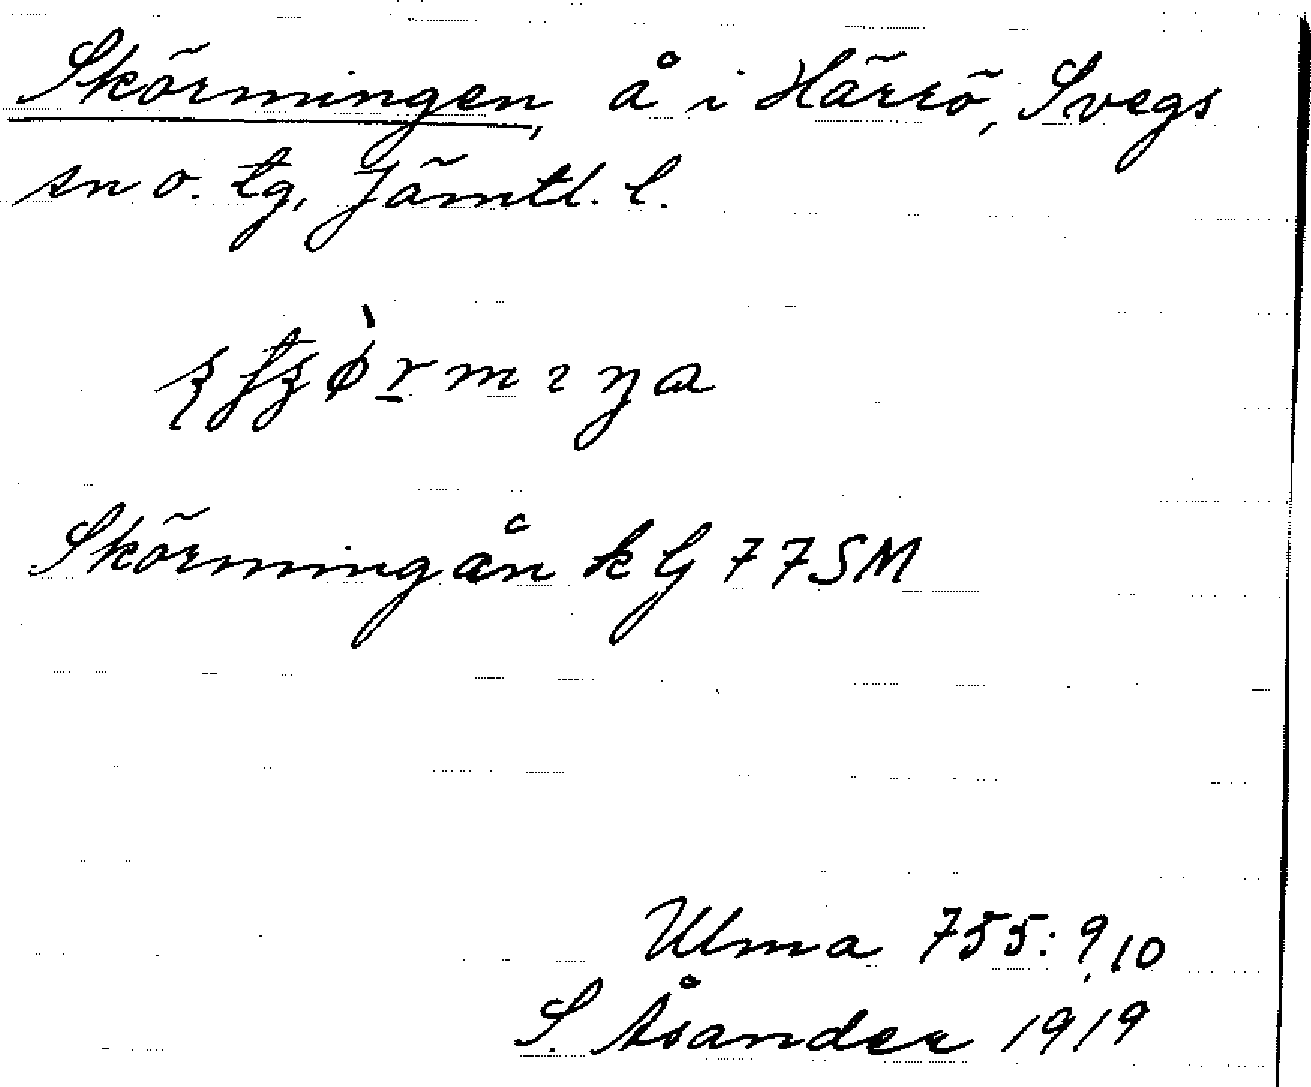 Skörmingen, å i Härrö, Svegs
sn o. tg, Jämtl. l.
Skörmingån k G 77SM
Ulma 755: 9,10
S. Åsander 1919